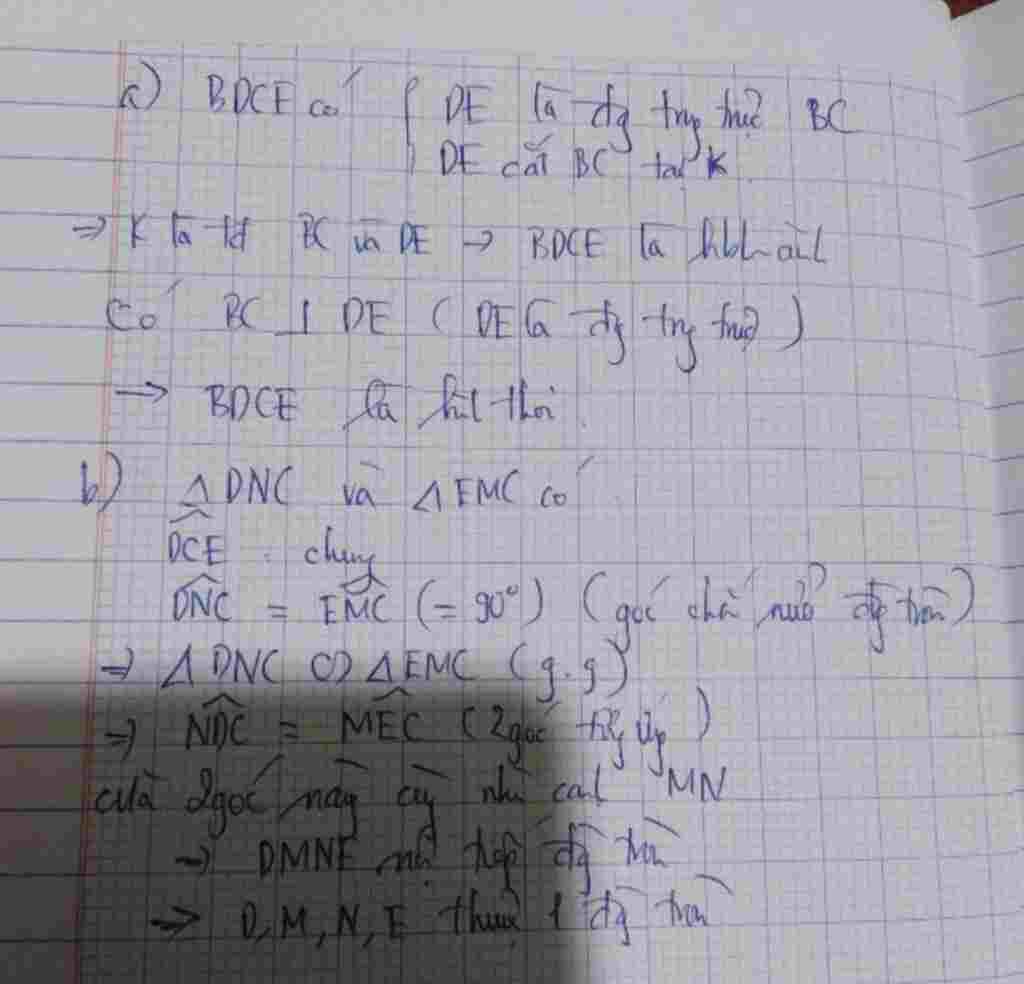 a) BDCE có { DE là đg trg trực BC
DE cắt BC tại K
=> K là tđ BC và DE -> BDCE là hbh àh
Có BC ⊥ DE ( DE là đg trg trực )
-> BDCE là hìh thoi.
b) Δ DNC và Δ EMC có
DCE : chung
DNC = EMC (= 90°) ( góc chắn nửa đg tròn )
=> Δ DNC ∽ Δ EMC ( g.g )
=> NDC = MEC ( 2 góc tg ứg )
mà 2 góc này cùg nhìn cạh MN
-> DMNE nội tiếp đg tròn
-> D, M, N, E thuộc 1 đg tròn